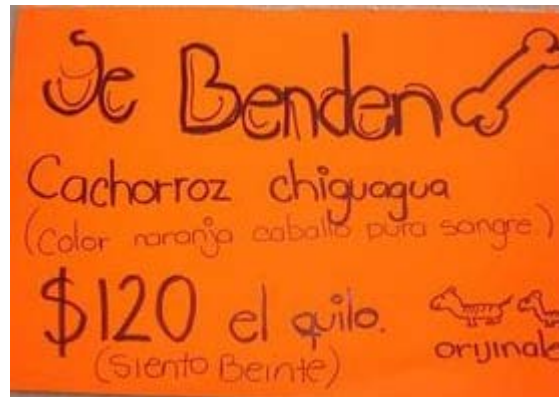 Se Benden
Cachorroz chiguagua
(Color naranja caballo pura sangre)
$120 el quilo.
(Siento Beinte)
orijinale